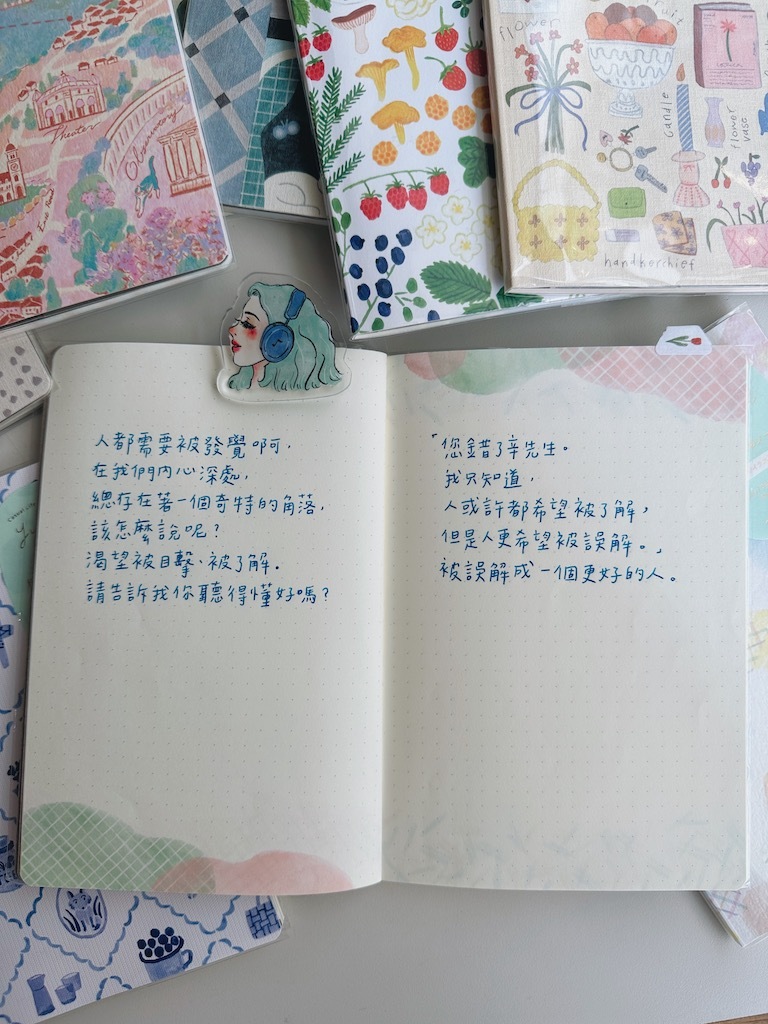 Theater
Observatory
flower
fruit
candle
flower
vase
handkerchief
人都需要被發覺啊,
在我們內心深處,
總存在著一個奇特的角落,
該怎麼說呢?
渴望被目擊、被了解.
請告訴我你聽得懂好嗎?
「您錯了辛先生。
我只知道,
人或許都希望被了解,
但是人更希望被誤解。」
被誤解成一個更好的人。